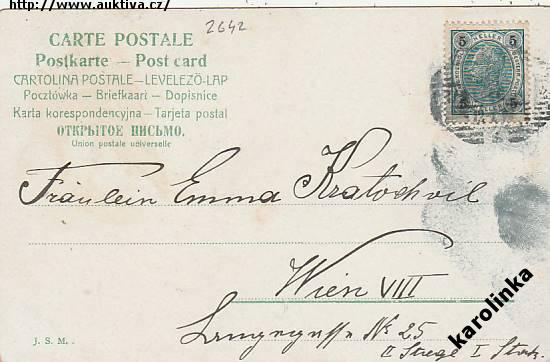 http://www.auktiva.cz/
2642
CARTE POSTALE
Postkarte — Post card
CARTOLINA POSTALE – LEVELEZÖ-LAP
Pocztówka – Briefkaart – Dopisnice
Karta korespondencyjna – Tarjeta postal
ОТКРЫТОЕ ПИСЬМО.
Union postale universelle
5 HELLER 5
5 5
Fräulein Emma Kratochvil
Wien VIII
Langegasse No 25
II Stiege I Stock
J. S. M.
karolinka